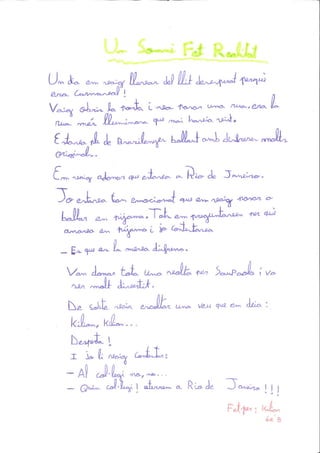 Un Somni Fet Realitat
Un dia em vaig llevar del llit desesperat perquè
era Carnaval!
Vaig obrir la porta i vaig veure una rua, era la
rua més lluminosa que mai havia vist.
Estava ple de Brasilenys ballant amb disfresses molt
originals.
Em vaig adonar que estava a Rio de Janeiro.
Jo estava tan emocionat que em vaig posar a
ballar en pijama. Tots em preguntaven per què
anava en pijama i jo contestava
- És que és la meva disfressa.
Vam donar tota una volta per Sao Paolo i va
ser molt divertit.
De sobte vaig escoltar una veu que em deia:
Kilian, Kilian...
Desperta!
I jo li vaig contestar:
- Al col·legi no, no...
- Quin col·legi! aterrem a Rio de Janeiro!!!
Fet per: Kilian
6è B